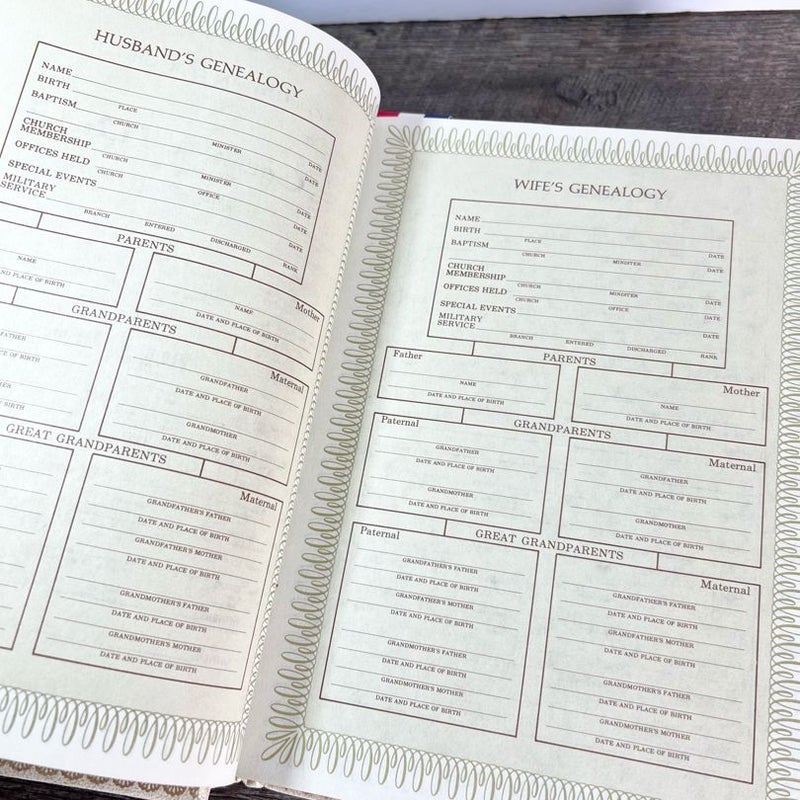 HUSBAND'S GENEALOGY
NAME
BIRTH
PLACE
BAPTISM
CHURCH MINISTER DATE
CHURCH
MEMBERSHIP
CHURCH MINISTER DATE
OFFICES HELD
CHURCH OFFICE DATE
SPECIAL EVENTS
DATE
MILITARY
SERVICE
BRANCH ENTERED DISCHARGED RANK
PARENTS
Mother
NAME
NAME
AND PLACE OF BIRTH
DATE AND PLACE OF BIRTH
GRANDPARENTS
Maternal
GRANDFATHER
PLACE OF BIRTH
DATE AND PLACE OF BIRTH
GRANDMOTHER
OF BIRTH
DATE AND PLACE OF BIRTH
GREAT GRANDPARENTS
Maternal
GRANDFATHER'S FATHER
DATE AND PLACE OF BIRTH
GRANDFATHER'S MOTHER
DATE AND PLACE OF BIRTH
GRANDMOTHER'S FATHER
DATE AND PLACE OF BIRTH
GRANDMOTHER'S MOTHER
DATE AND PLACE OF BIRTH
WIFE'S GENEALOGY
NAME
BIRTH
PLACE DATE
BAPTISM
CHURCH MINISTER DATE
CHURCH
MEMBERSHIP
CHURCH MINISTER DATE
OFFICES HELD
CHURCH OFFICE DATE
SPECIAL EVENTS
DATE
MILITARY
SERVICE
BRANCH ENTERED DISCHARGED RANK
PARENTS
Father Mother
NAME NAME
DATE AND PLACE OF BIRTH DATE AND PLACE OF BIRTH
GRANDPARENTS
Paternal Maternal
GRANDFATHER GRANDFATHER
DATE AND PLACE OF BIRTH DATE AND PLACE OF BIRTH
GRANDMOTHER GRANDMOTHER
DATE AND PLACE OF BIRTH DATE AND PLACE OF BIRTH
GREAT GRANDPARENTS
Paternal Maternal
GRANDFATHER'S FATHER GRANDFATHER'S FATHER
DATE AND PLACE OF BIRTH DATE AND PLACE OF BIRTH
GRANDFATHER'S MOTHER GRANDFATHER'S MOTHER
DATE AND PLACE OF BIRTH DATE AND PLACE OF BIRTH
GRANDMOTHER'S FATHER GRANDMOTHER'S FATHER
DATE AND PLACE OF BIRTH DATE AND PLACE OF BIRTH
GRANDMOTHER'S MOTHER GRANDMOTHER'S MOTHER
DATE AND PLACE OF BIRTH DATE AND PLACE OF BIRTH